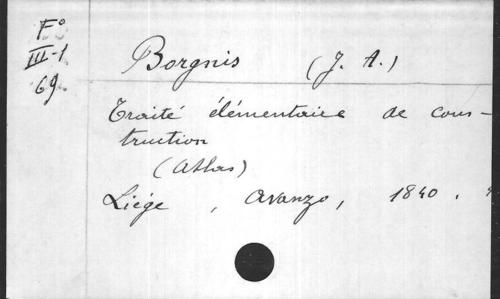 F°
III-1
69.
Borgnis (J. A.)
Traité élémentaire de cons-
truction
(Atlas)
Liége, Avanzo, 1840.